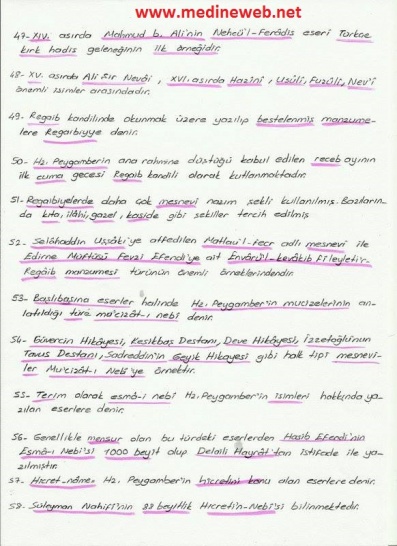 www.medineweb.net
47- XIV. asırda Mahmud b. Ali'nin Nehcü'l-Ferâdis eseri Türkçe
kırk hadis geleneğinin ilk örneğidir.
48- XV. asırda Ali Şir Nevâi, XVI. asırda Hazînî, Usûlî, Fuzûlî, Nev'î
önemli isimler arasındadır.
49- Regaib kandilinde okunmak üzere yazılıp bestelenmiş manzume-
lere Regaibiyye denir.
50- Hz. Peygamber'in ana rahmine düştüğü kabul edilen receb ayının
ilk cuma gecesi Regaib kandili olarak kutlanmaktadır.
51- Regaibiyelerde daha çok mesnevi nazım şekli kullanılmış. Bazıların-
da kıta, ilâhi, gazel, kaside gibi şekiller tercih edilmiş
52- Selâhaddin Uşşâki'ye atfedilen Matlau'l-fecr adlı mesnevi ile
Edirne Müftüsü Fevzi Efendi'ye ait Envârü'l-kevâkib fi leyletir-
Regâib manzumesi türünün önemli örneklerindendir.
53- Başlıbaşına eserler halinde Hz. Peygamber'in mucizelerinin an-
latıldığı türe mu'cizât-ı nebi denir.
54- Güvercin Hikâyesi, Kesikbaş Destanı, Deve Hikâyesi, İzzetoğlu'nun
Tavus Destanı, Sadreddin'in Geyik Hikayesi gibi halk tipi mesnevi-
ler Mu'cizât-ı Nebi'ye örnektir.
55- Terim olarak esmâ-i nebi Hz. Peygamber'in isimleri hakkında ya-
zılan eserlere denir.
56- Genellikle mensur olan bu türdeki eserlerden Hasib Efendi'nin
Esmâ-i Nebi'si 1000 beyit olup Delaili Hayrât'tan istifade ile ya-
zılmıştır.
57- Hicret-nâme: Hz. Peygamber'in hicretini konu alan eserlere denir.
58- Süleyman Nahifi'nin 88 beyitlik Hicretin-Nebi'si bilinmektedir.